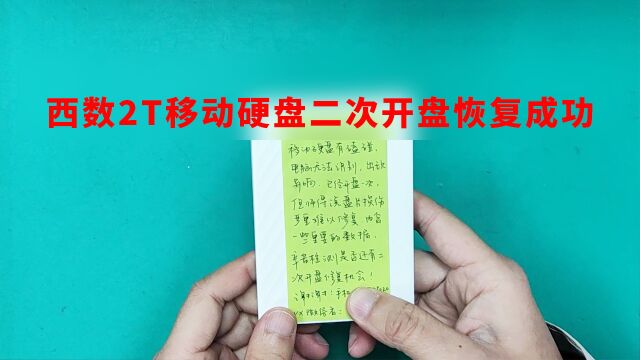 西数2T移动硬盘二次开盘恢复成功
移动硬盘有谴谁,
电脑无法识别,出现
异响,已经开盘一次,
但师傅说盘片损伤
严重难以修复,内含
一些重要的数据,
辛苦检测是否还有二
次开盘修复机会!
谢谢!手机
VX微信者: